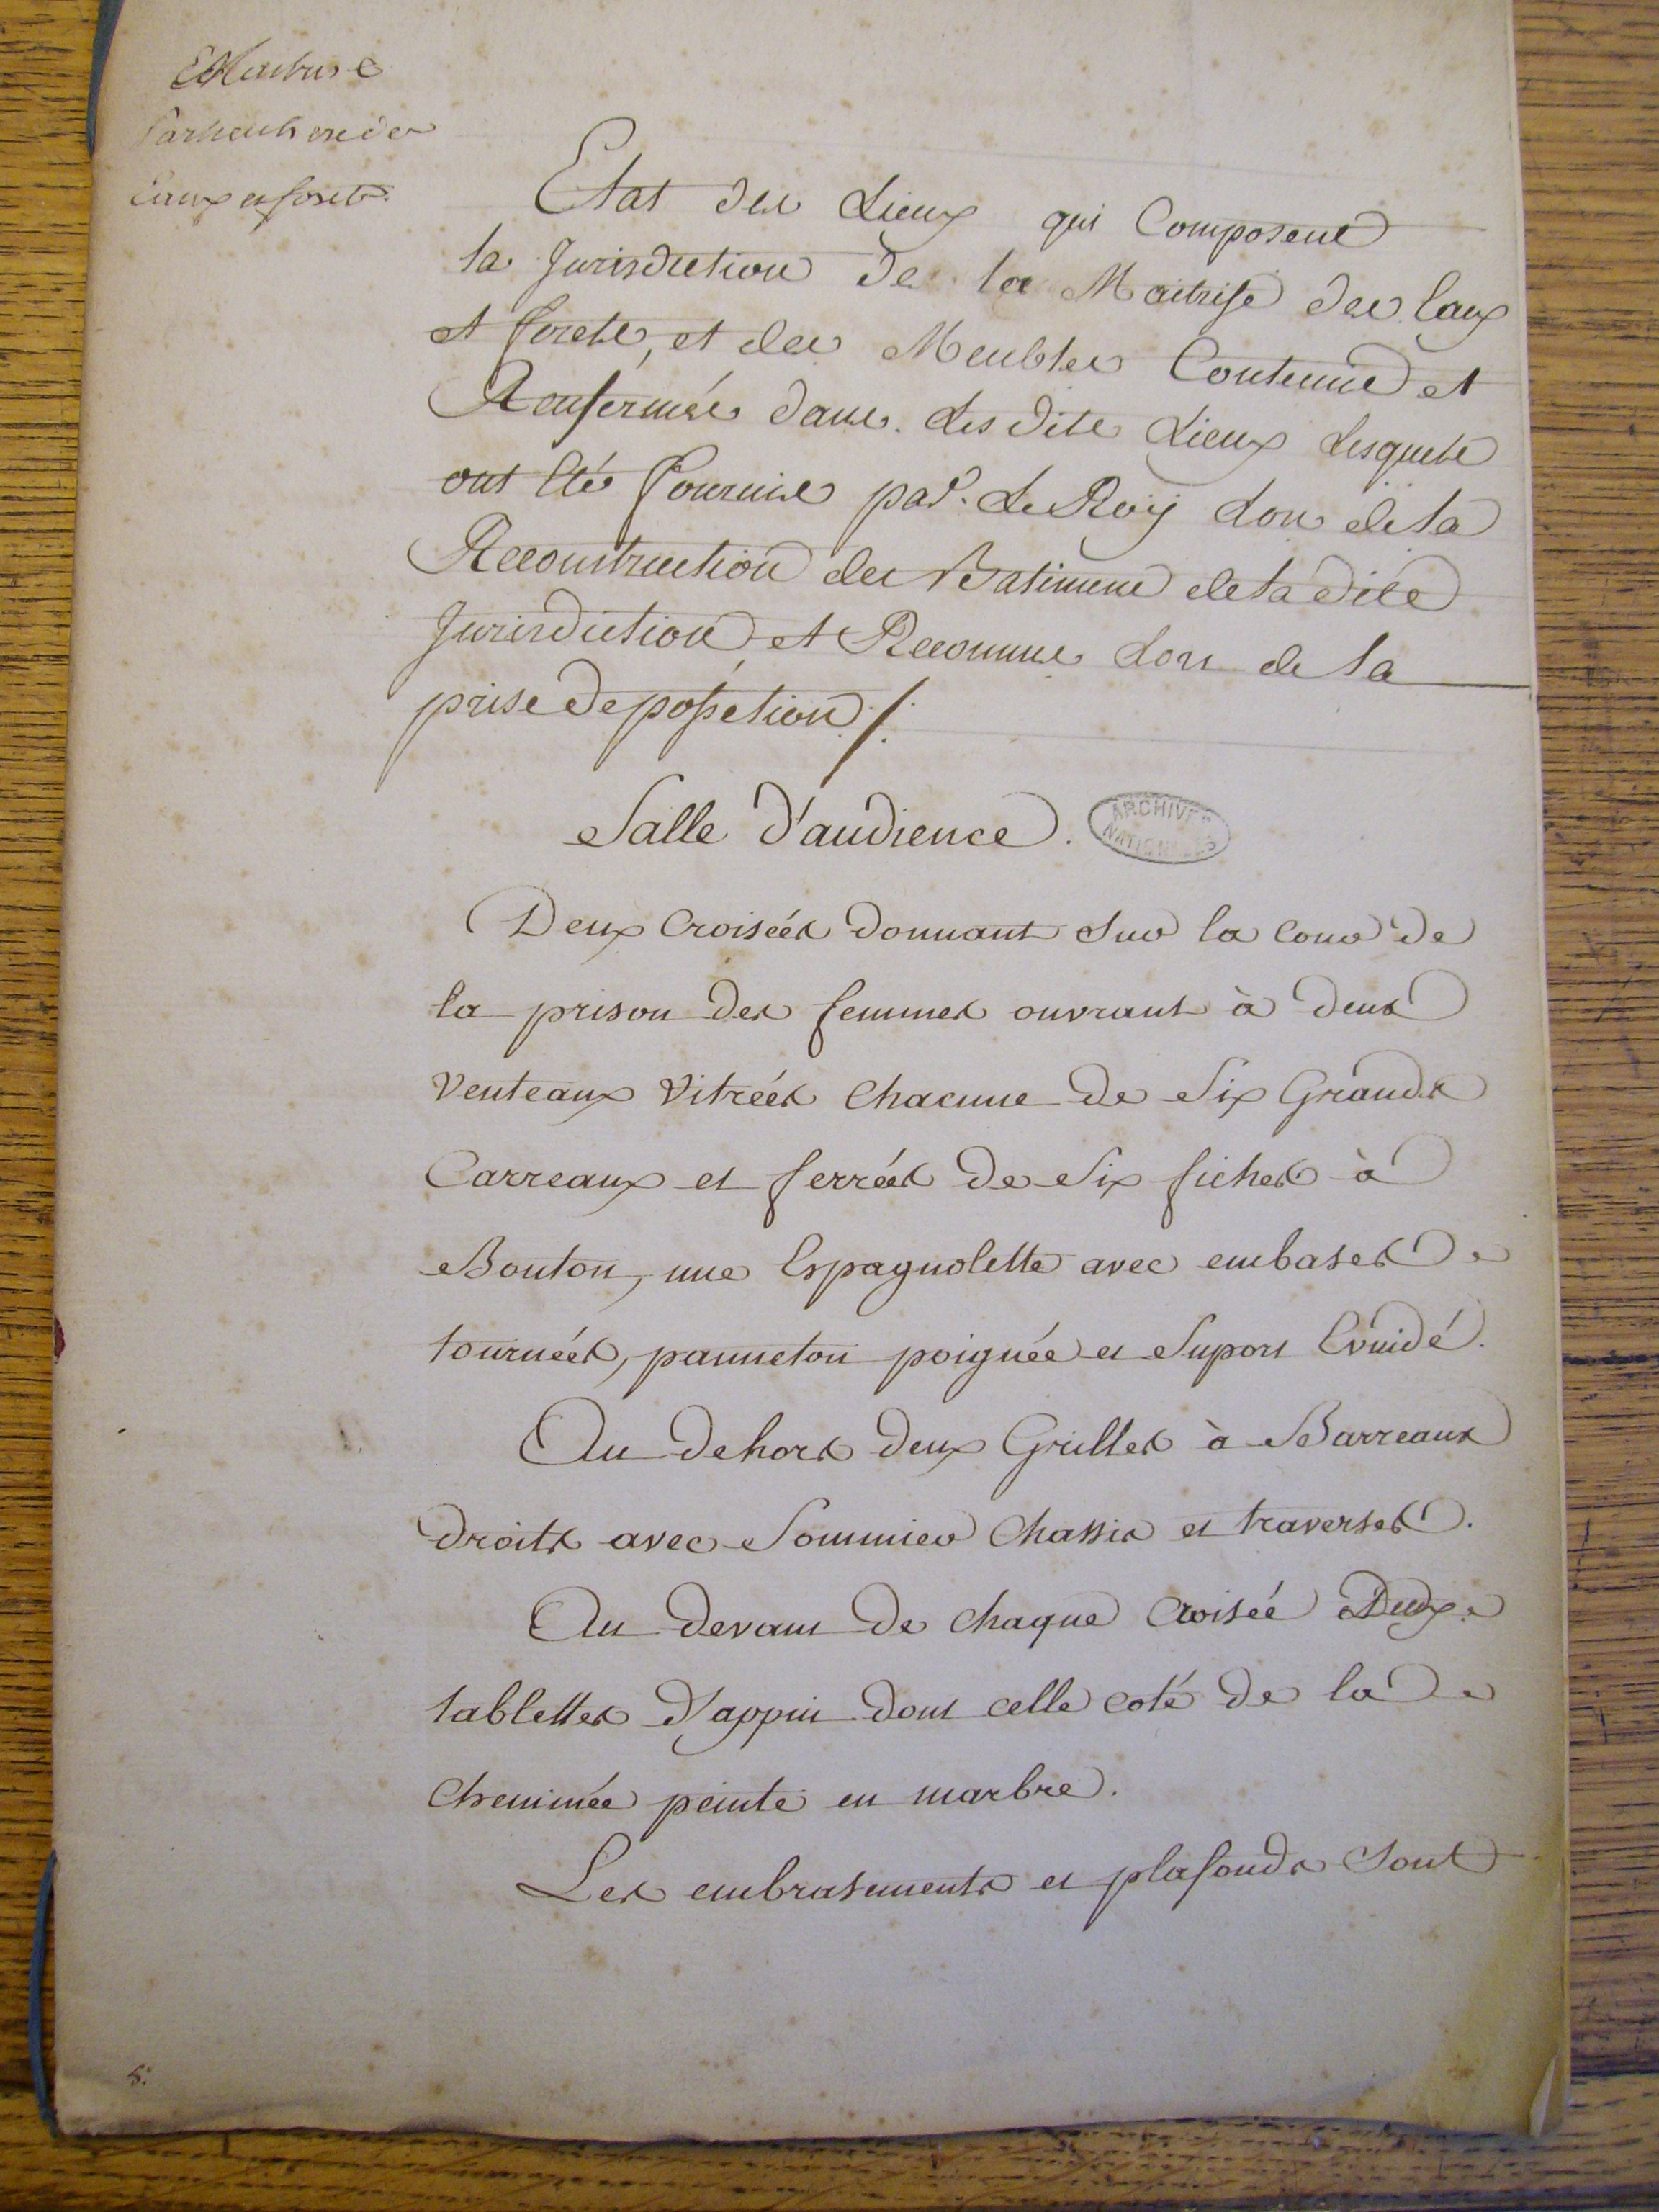 Maitrise
Particuliere des
Eaux et forets.
Etat des Lieux qui Composent
la Jurisdiction de la Maitrise des Eaux
et forets, et des Meubles Contenus et
Renfermés dans Les dits Lieux Lesquels
ont Eté fournis par Le Roy Lors de la
Reconstruction des Batimens de la dite
Jurisdiction et Reconnus Lors de la
prise de possétion /.
Salle d'audience.
ARCHIVES
NATIONALES
Deux Croisées donnant Sur la Cour de
la prison des femmes ouvrant à deux
Venteaux Vitrées Chacune de Six Grands
Carreaux et ferrées de Six fiches à
Bouton, une Espagnolette avec embases
tournées, panneton poignée et Suport Evuidé.
Au dehors deux Grilles à Barreaux
droits avec Sommier Chassis et traverses.
Au devant de Chaque Croisée Deux
tablettes d'appui dont celle coté de la
Cheminée peinte en marbre.
Les embrasements et plafonds Sont
5.